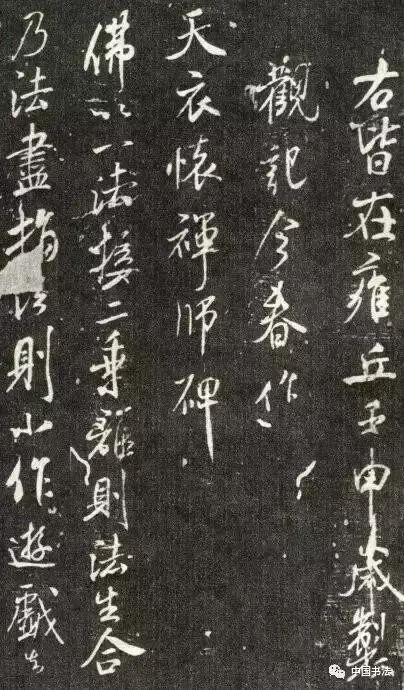 右皆在雍丘壬申歲製
觀記今春作
天衣懷禪師碑
佛以一法接二乘離則法生合
乃法盡指以則小作遊戲
中国书法